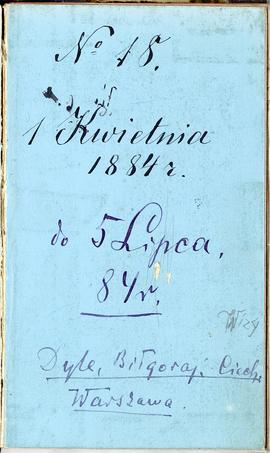 No 18.
od
1 Kwietnia
1884 r.
do 5 Lipca.
84 r.
Wizy
Dyle, Biłgoraj. Ciech.
Warszawa.